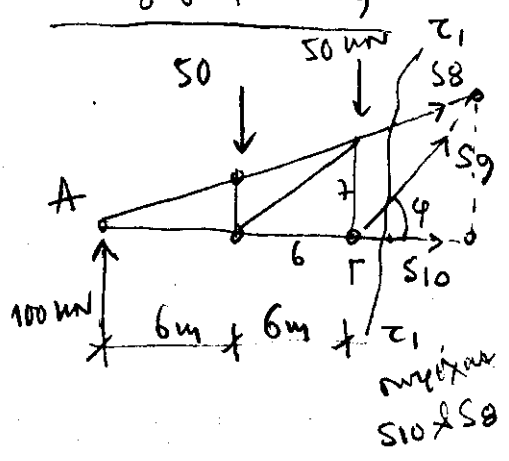 50 kN τ1
50 S8
S9
A 7 φ
6 Γ S10
100 kN
6m 6m τ1
S10 & S8